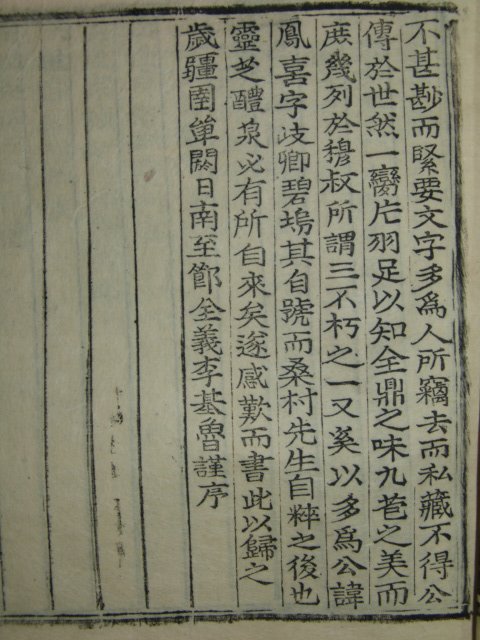 不甚尠而緊要文字多爲人所竊去而私藏不得公
傳於世然一臠片羽足以知全鼎之味九苞之美而
庶幾列於穆叔所謂三不朽之一又奚以多爲公諱
鳳喜字歧卿碧塢其自號而桑村先生自粹之後也
靈芝醴泉必有所自來矣遂感歎而書此以歸之
歲疆圉單閼日南至節全義李基魯謹序